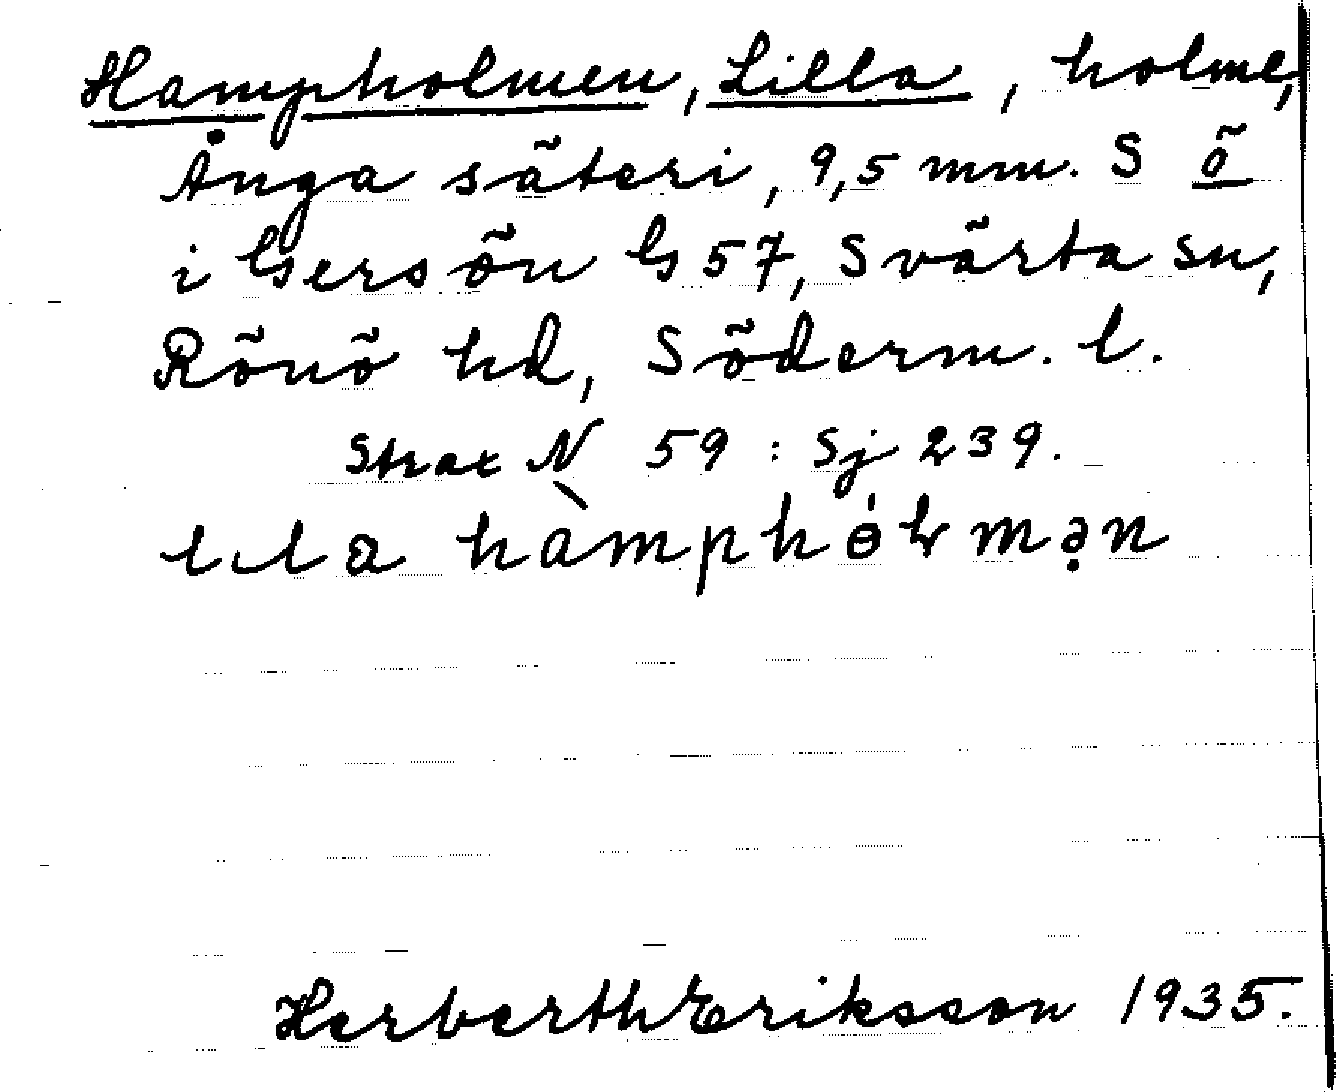 Hampholmen, Lilla, holme,
Ånga säteri, 9,5 mm. S ö
i Gersön G 57, Svärta sn,
Rönö hd, Söderm. l.
Strax N 59 : Sj 239.
lıla hàmphɵ́lmən
Herberth Eriksson 1935.